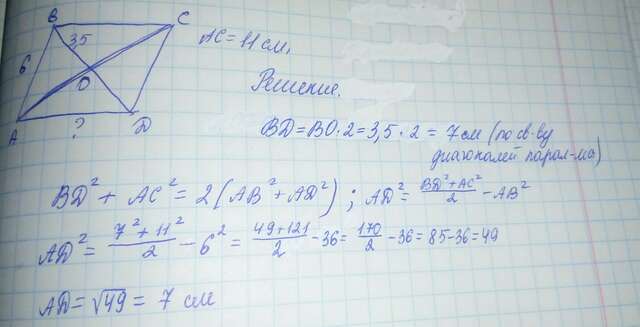 B C
3,5
AC = 11 см,
6
O
Решение.
A D
?
BD = BO · 2 = 3,5 · 2 = 7 см (по св-ву
диагоналей парал-ма)
BD² + AC² = 2 (AB² + AD²) ; AD² = (BD² + AC²)/2 - AB²
AD² = (7² + 11²)/2 - 6² = (49 + 121)/2 - 36 = 170/2 - 36 = 85 - 36 = 49
AD = √49 = 7 см